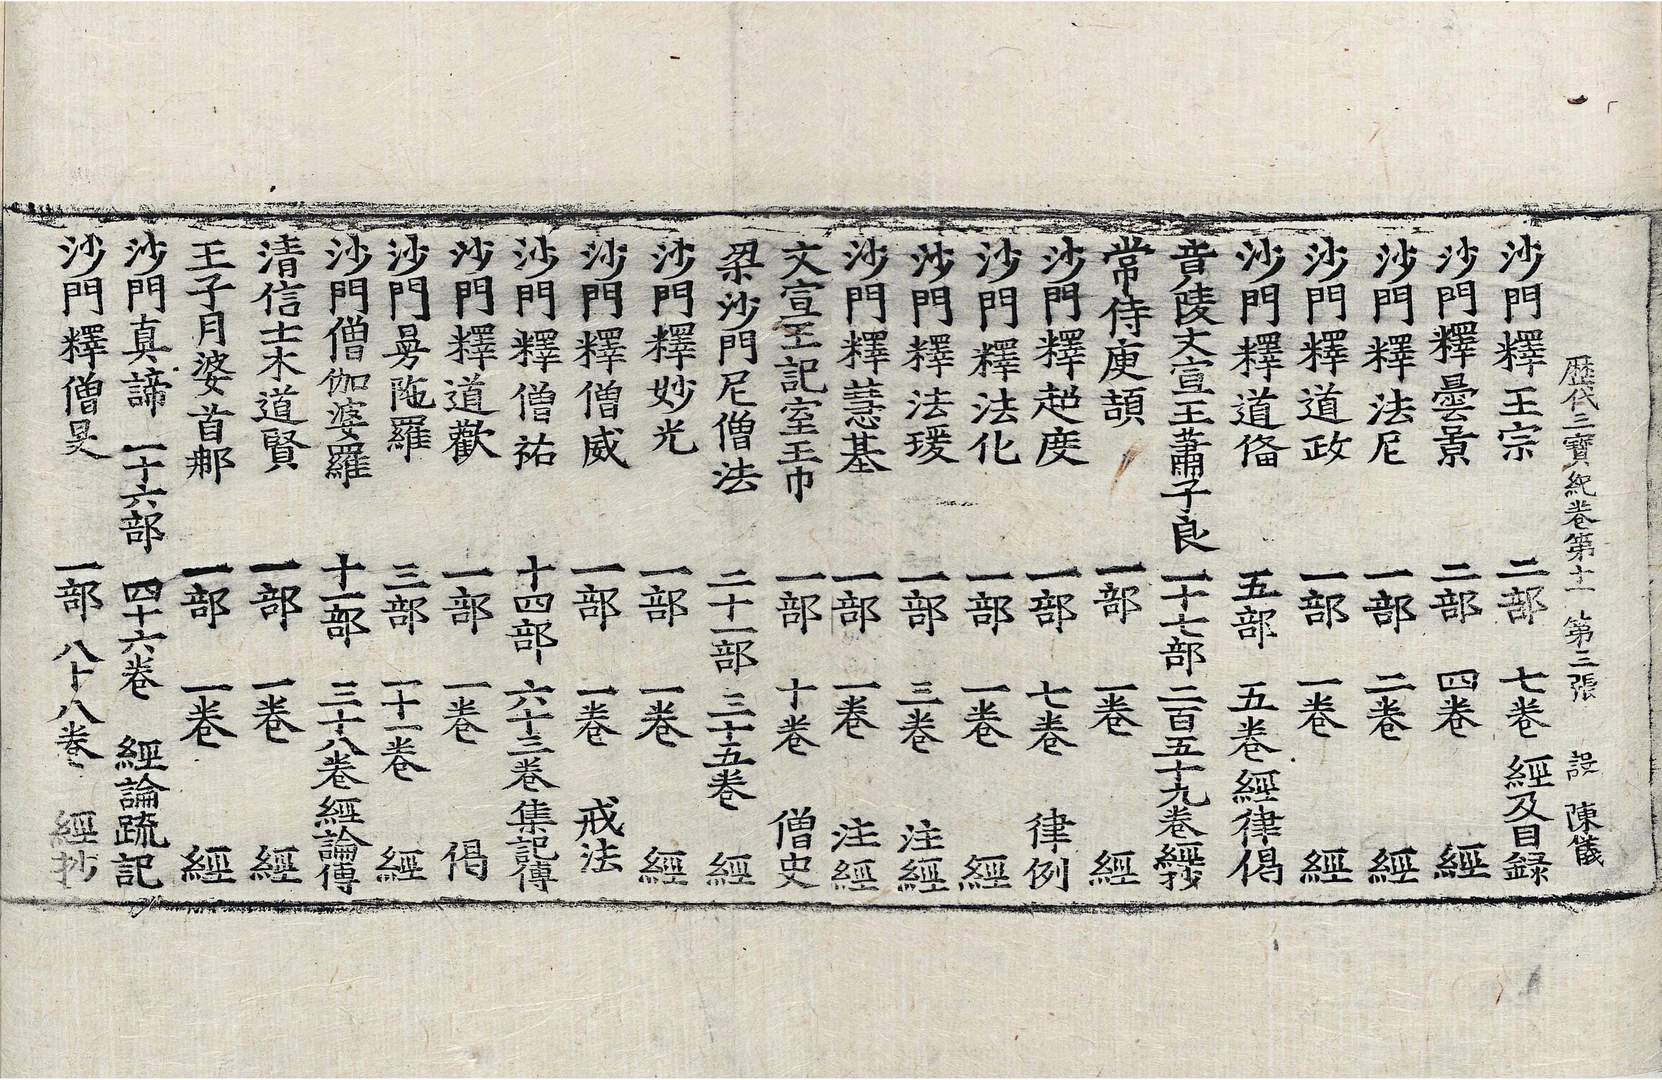 歷代三寶紀卷第十一 第三張 設 陳儀
沙門釋王宗 二部 七卷 經及目録
沙門釋曇景 二部 四卷 經
沙門釋法尼 一部 二卷 經
沙門釋道政 一部 一卷 經
沙門釋道俻 五部 五卷 經律偈
竟陵文宣王蕭子良 一十七部 二百五十九卷 經抄
常侍庾頡 一部 一卷 經
沙門釋超度 一部 七卷 律例
沙門釋法化 一部 一卷 經
沙門釋法瑗 一部 三卷 注經
沙門釋慧基 一部 一卷 注經
文宣王記室王巾 一部 十卷 僧史
梁沙門尼僧法 二十一部 三十五卷 經
沙門釋妙光 一部 一卷 經
沙門釋僧威 一部 一卷 戒法
沙門釋僧祐 十四部 六十三卷 集記傳
沙門釋道歡 一部 一卷 偈
沙門曼陁羅 三部 一十一卷 經
沙門僧伽婆羅 十一部 三十八卷 經論傳
清信士木道賢 一部 一卷 經
王子月婆首那 一部 一卷 經
沙門真諦 一十六部 四十六卷 經論疏記
沙門釋僧旻 一部 八十八卷 經抄